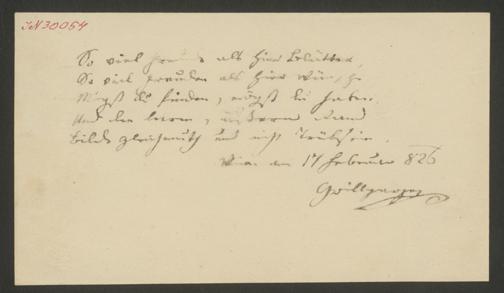 IN 30054
So viel als hier Blätter,
So viel Freuden als hier Wünsche
Mögst du finden, mögst du haben.
Und den leeren, Rand
Bilde Gleichmuth und nicht Trübsinn.
Wien am 17 Februar 826
Grillparzer